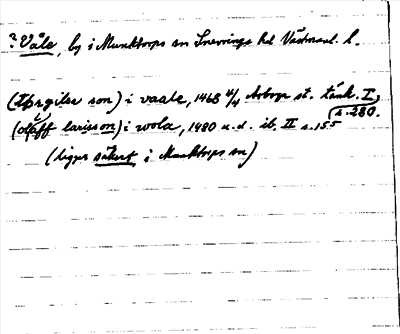 ? Våle, by i Munktorps sn Snevringe hd Västmanl. l.
(Thrgilss son) i vaale, 1468 4/4 Arboga st. tänk. I, s. 280.
(olaff larisson) i wola, 1480 u.d. ib. II s. 155
(ligger säkert i Munktorps sn)